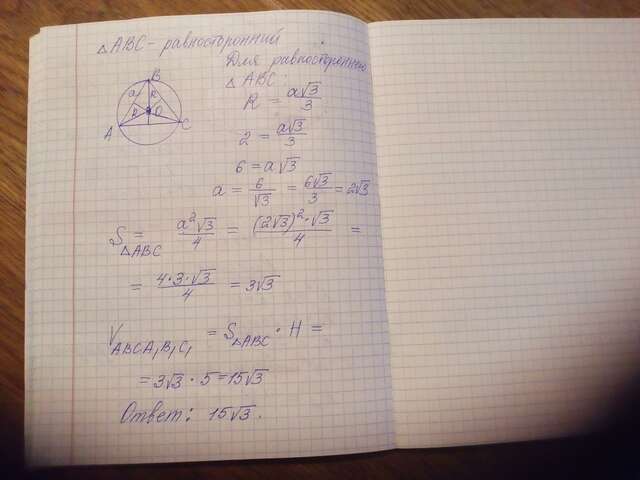 △ABC - равносторонний
Для равностороннего
△ABC:
R = a√3/3
2 = a√3/3
6 = a√3
a = 6/√3 = 6√3/3 = 2√3
S△ABC = a²√3/4 = (2√3)²·√3/4 =
= 4·3·√3/4 = 3√3
VABCA₁B₁C₁ = S△ABC · H =
= 3√3 · 5 = 15√3
Ответ: 15√3.
B
a R
R O
A C